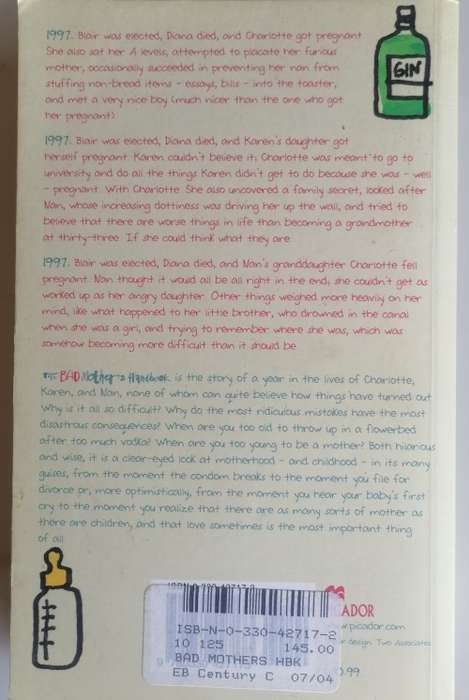 1997. Blair was elected, Diana died, and Charlotte got pregnant.
She also sat her A levels, attempted to placate her furious
mother, occasionally succeeded in preventing her nan from
stuffing non-bread items - essays, bills - into the toaster,
and met a very nice boy (much nicer than the one who got
her pregnant)
GIN
1997. Blair was elected, Diana died, and Karen's daughter got
herself pregnant. Karen couldn't believe it; Charlotte was meant to go to
university and do all the things Karen didn't get to do because she was - well
- pregnant. With Charlotte. She also uncovered a family secret, looked after
Nan, whose increasing dottiness was driving her up the wall, and tried to
believe that there are worse things in life than becoming a grandmother
at thirty-three. If she could think what they are.
1997. Blair was elected, Diana died, and Nan's granddaughter Charlotte fell
pregnant. Nan thought it would all be all right in the end; she couldn't get as
worked up as her angry daughter. Other things weighed more heavily on her
mind, like what happened to her little brother, who drowned in the canal
when she was a girl, and trying to remember where she was, which was
somehow becoming more difficult than it should be.
THE BAD Mother's Handbook is the story of a year in the lives of Charlotte,
Karen, and Nan, none of whom can quite believe how things have turned out.
Why is it all so difficult? Why do the most ridiculous mistakes have the most
disastrous consequences? When are you too old to throw up in a flowerbed
after too much vodka? When are you too young to be a mother? Both hilarious
and wise, it is a clear-eyed look at motherhood - and childhood - in its many
guises, from the moment the condom breaks to the moment you file for
divorce or, more optimistically, from the moment you hear your baby's first
cry to the moment you realize that there are as many sorts of mother as
there are children, and that love sometimes is the most important thing
of all.
ADOR
.picador.com
design: Two Associates
.99
ISBN-N-0-330-42717-2
10 125 145.00
BAD MOTHERS HBK
EB Century C 07/04